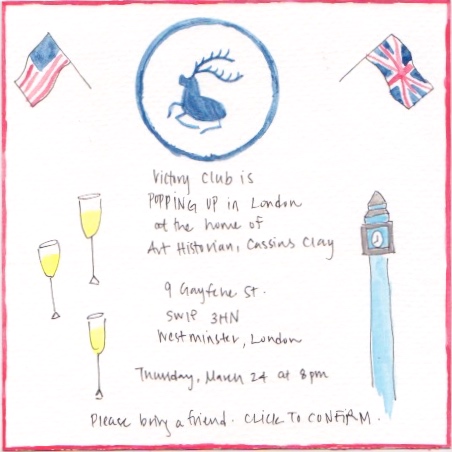 Victory Club is
POPPING UP in London
at the home of
Art Historian, Cassius Clay
9 Gayfere St.
SW1P 3HN
Westminster, London
Thursday, March 24 at 8pm
Please bring a friend. CLICK TO CONFIRM.